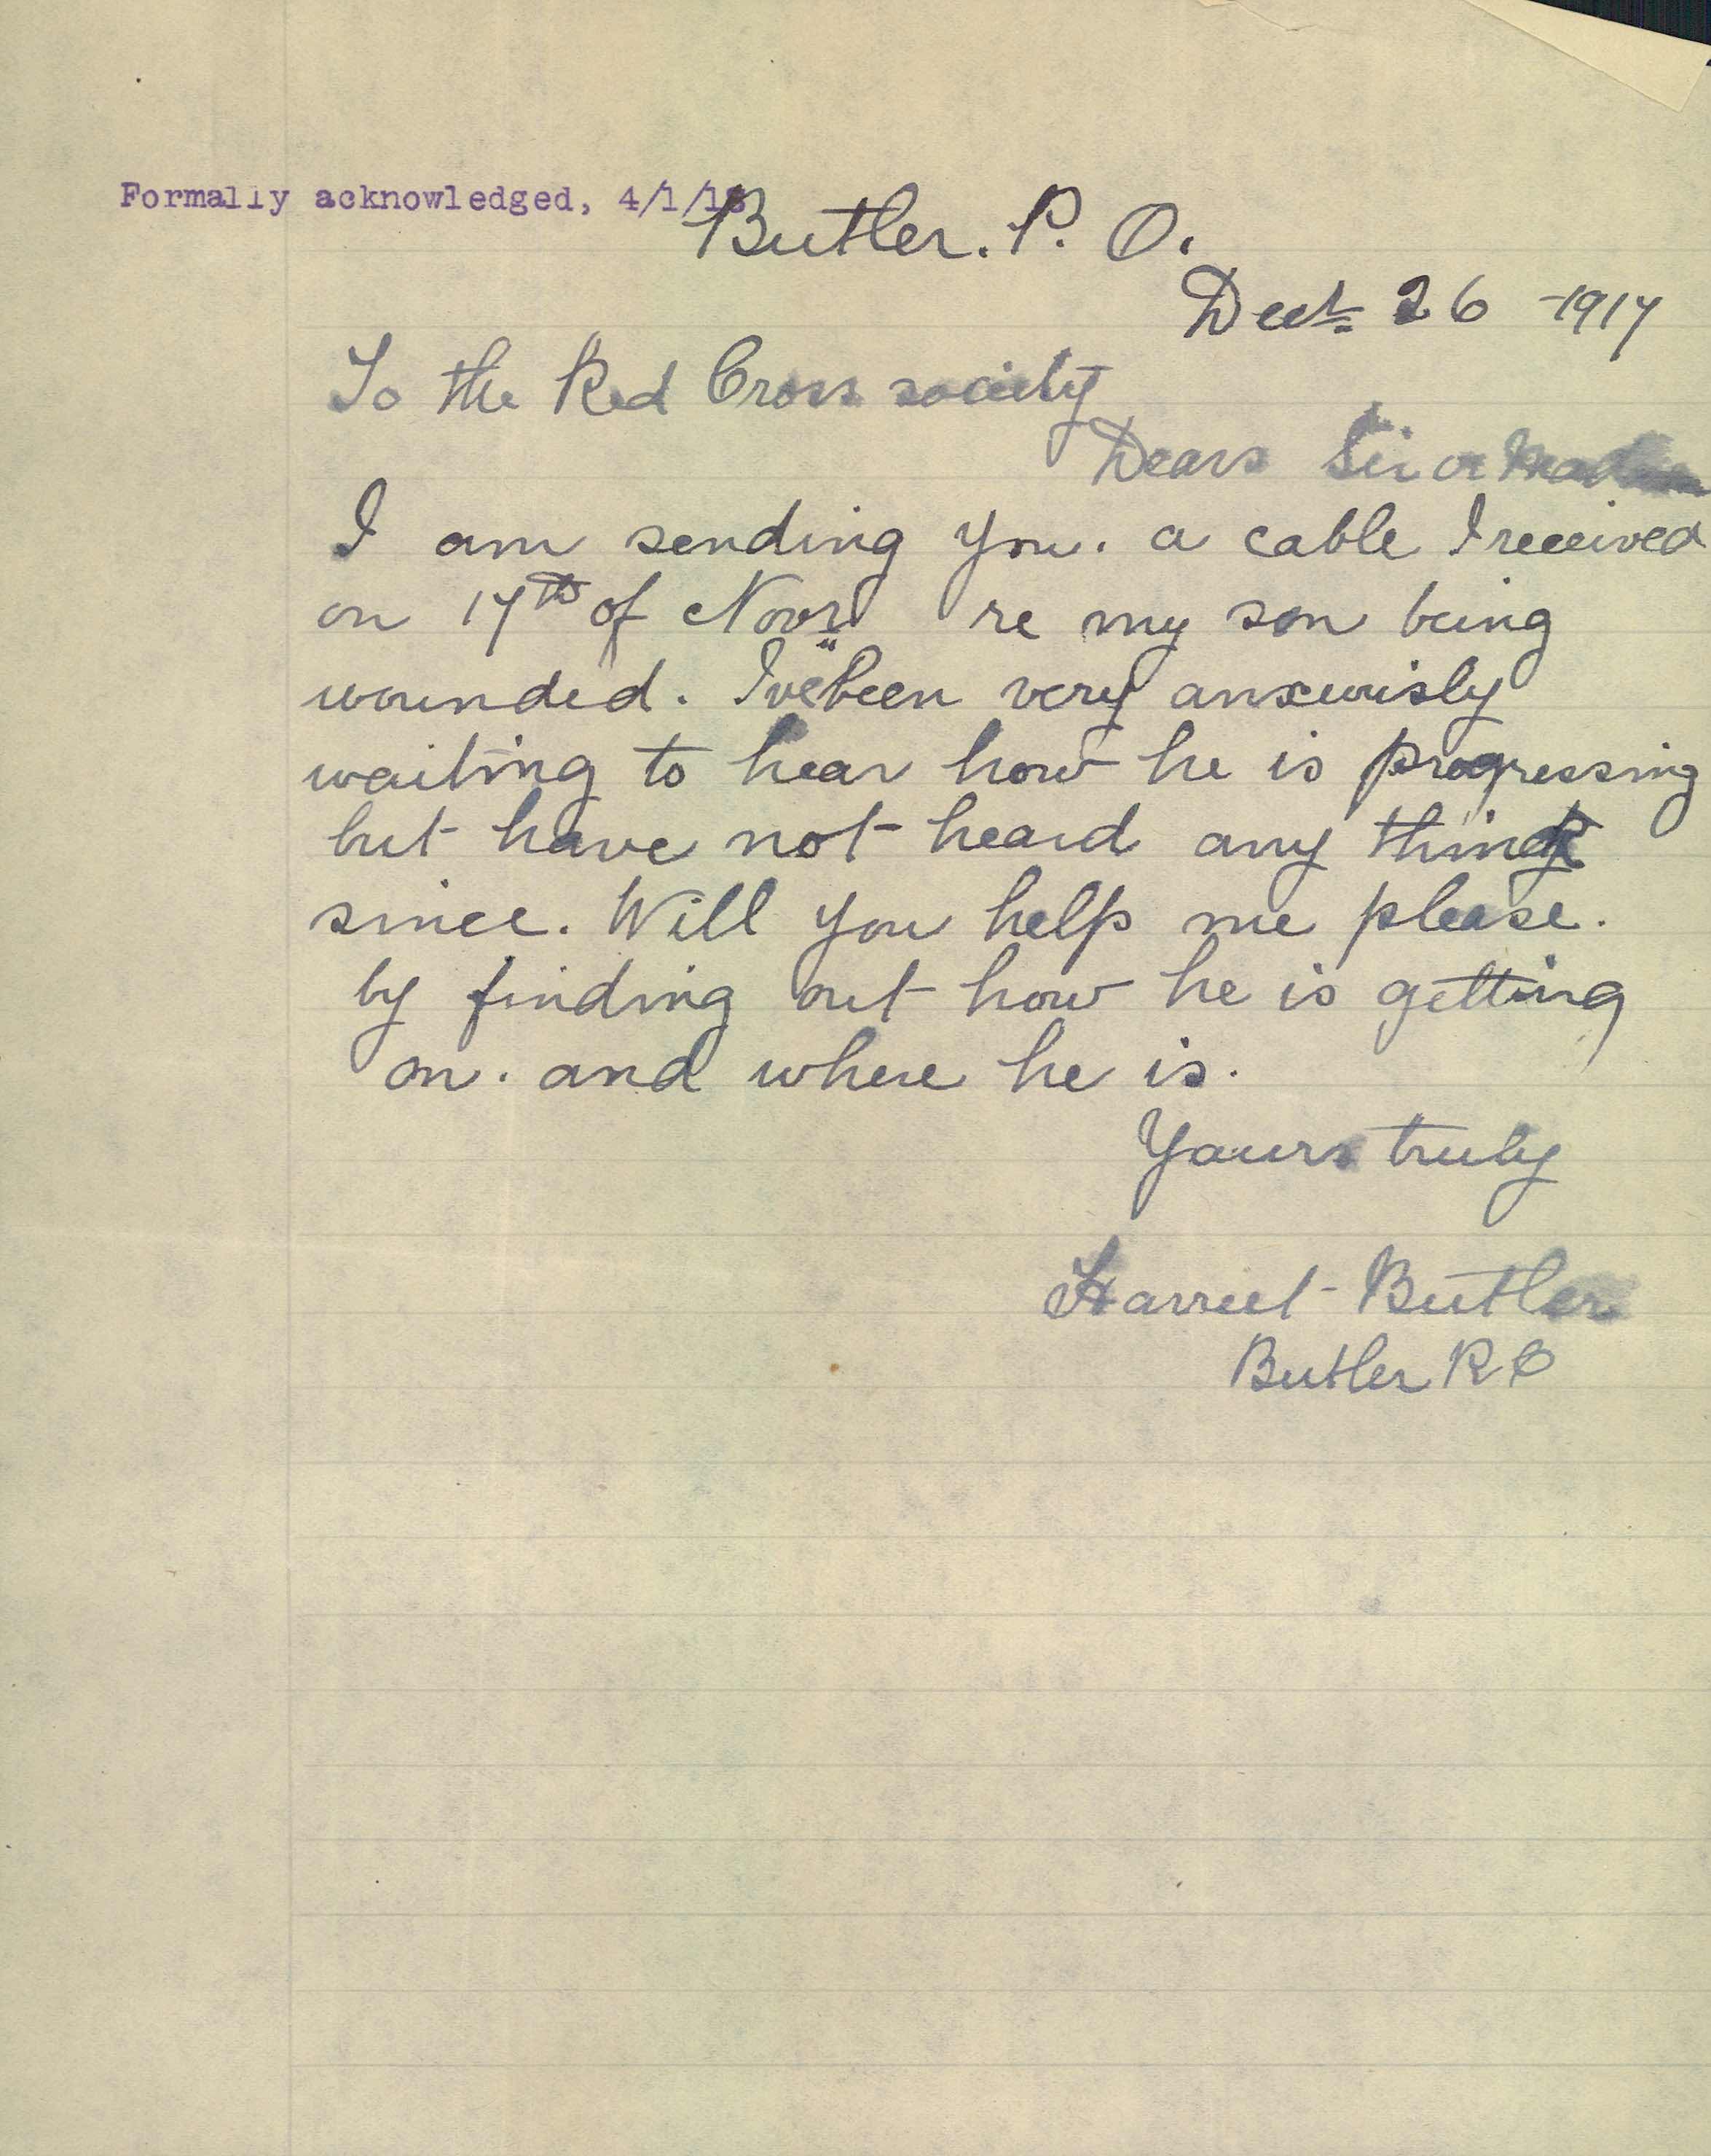 Formally acknowledged, 4/1/18
Butler. P. O.
Dect 26 - 1917
To the Red Cross society
Dears Sir or Madam
I am sending you. a cable I received
on 17th of Novr re my son being
wounded. I've been very anxiuisly
waiting to hear how he is progressing
but have not heard any thing
since. Will you help me please.
by finding out how he is getting
on. and where he is.
Yours truly
Harriet Butler
Butler P O